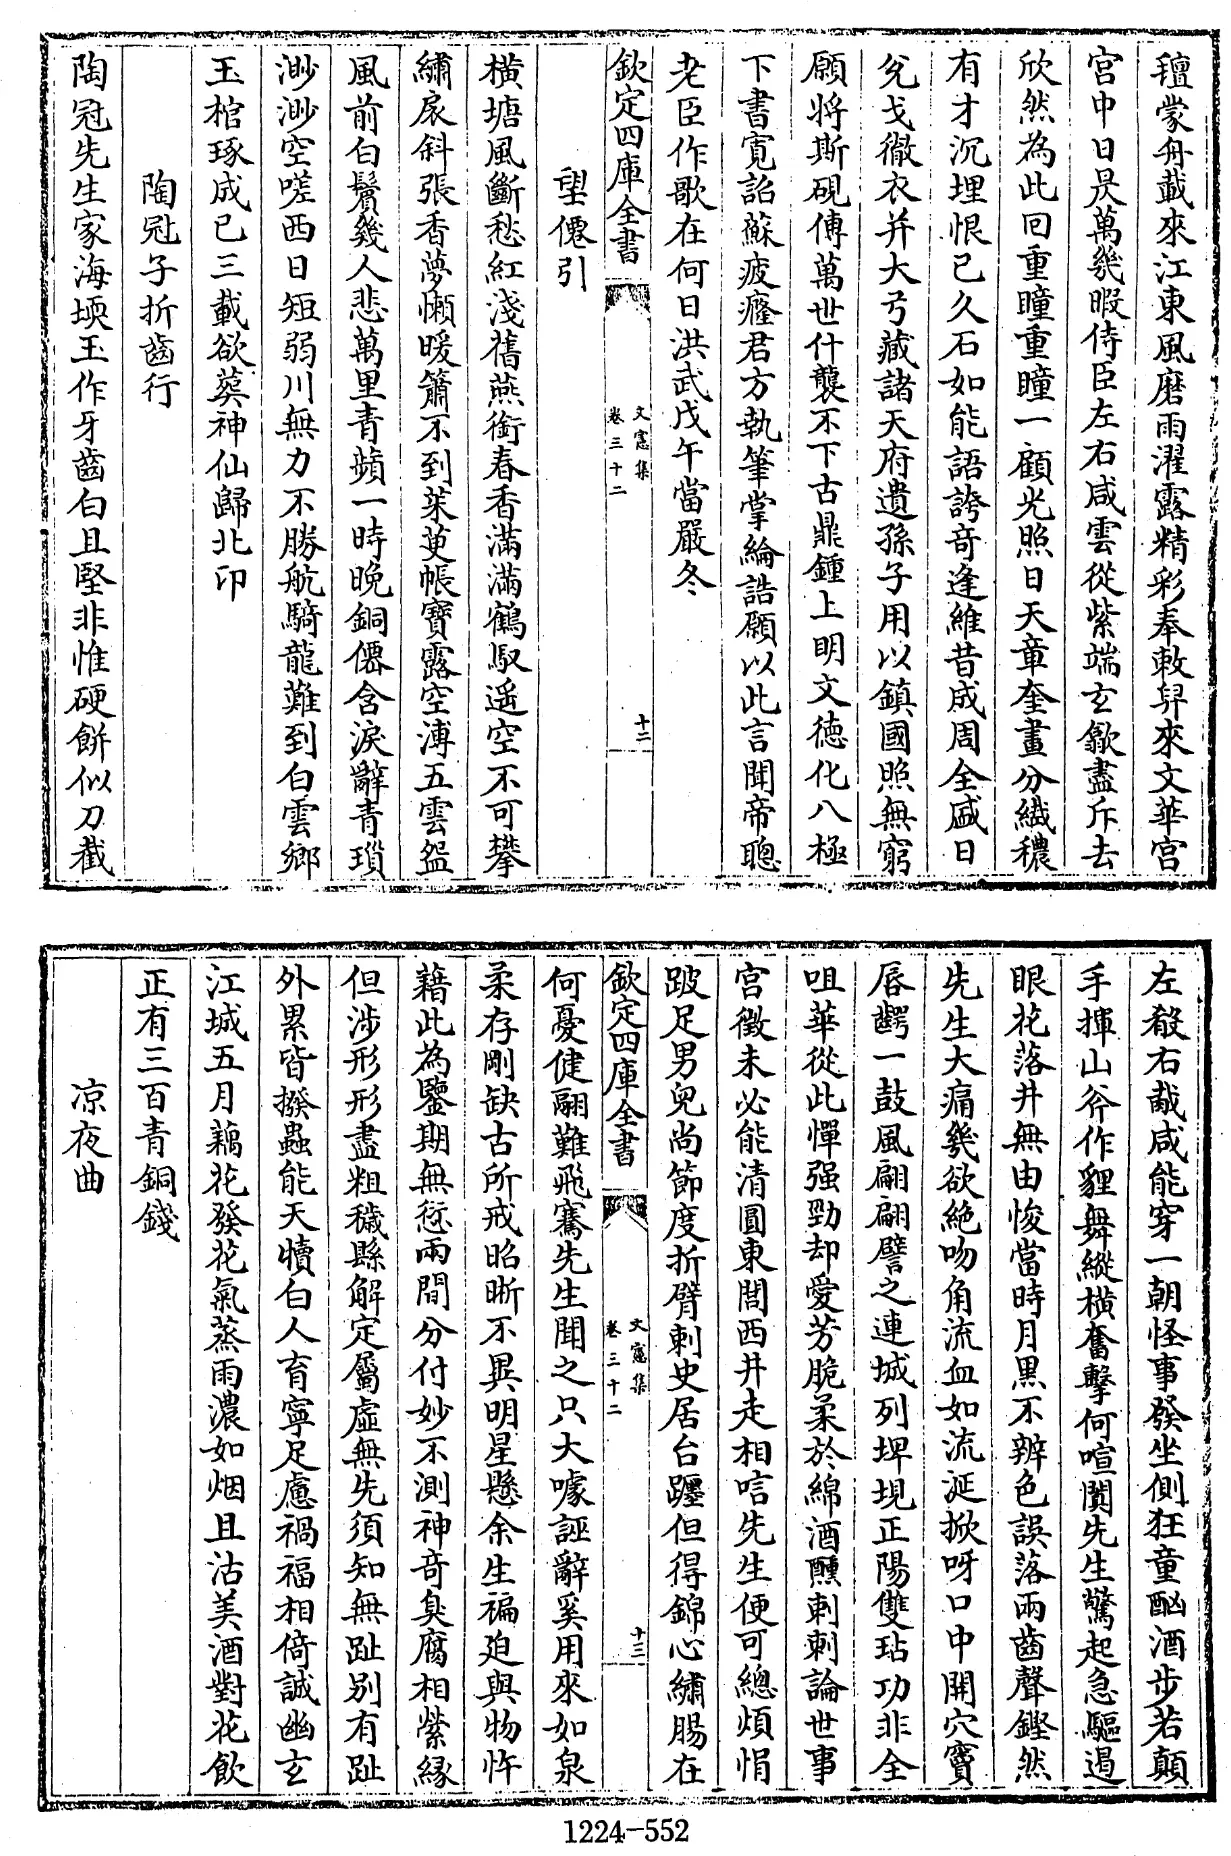 氊蒙舟載來江東風磨雨濯露精彩奉敕舁來文華宮
宫中日昃萬幾暇侍臣左右咸雲從紫端玄歙盡斥去
欣然為此回重瞳重瞳一顧光照日天章奎畫分纎穠
有才沉埋恨已久石如能語誇奇逢維昔成周全盛日
兊戈徹衣并大弓藏諸天府遺孫子用以鎮國照無窮
願將斯硯傳萬世什襲不下古鼎鍾上明文德化八極
下書寛詔蘇疲癃君方執筆掌綸誥願以此言聞帝聰
老臣作歌在何日洪武戊午當嚴冬
欽定四庫全書
文憲集
卷三十二
十二
望僊引
横塘風斷愁紅淺舊燕銜春香滿滿鶴馭遥空不可攀
繡扆斜張香夢懶暖簫不到茱萸帳寶露空漙五雲盌
風前白鬢幾人悲萬里青蘋一時晚銅僊含淚辭青瑣
渺渺空嗟西日短弱川無力不勝航騎龍難到白雲鄉
玉棺琢成已三載欲葬神仙歸北邙
陶冠子折齒行
陶冠先生家海堧玉作牙齒白且堅非惟硬餅似刀截
左殽右胾咸能穿一朝怪事發坐側狂童酗酒步若顛
手揮山斧作貍舞縱橫奮擊何喧闐先生驚起急驅遏
眼花落井無由悛當時月黑不辨色誤落兩齒聲鏗然
先生大痛幾欲絶吻角流血如流涎掀呀口中開穴竇
唇齶一鼓風翩翩譬之連城列埤堄正陽雙玷功非全
咀華從此憚强勁却愛芳脆柔於綿酒醺刺刺論世事
宫徵未必能清圓東閭西井走相唁先生便可總煩悁
跛足男兒尚節度折臂刺史居台躔但得錦心繡腸在
欽定四庫全書
文憲集
卷三十二
十三
何憂健翮難飛騫先生聞之只大噱誣辭奚用來如泉
柔存剛缺古所戒昭晰不異明星懸余生褊廹與物忤
藉此為鑒期無愆兩間分付妙不測神奇臭腐相縈緣
但涉形形盡粗穢縣解定屬虛無先須知無趾别有趾
外累皆撥蟲能天犢白人盲寧足慮禍福相倚誠幽玄
江城五月藕花發花氣蒸雨濃如烟且沽美酒對花飲
正有三百青銅錢
凉夜曲
1224-552